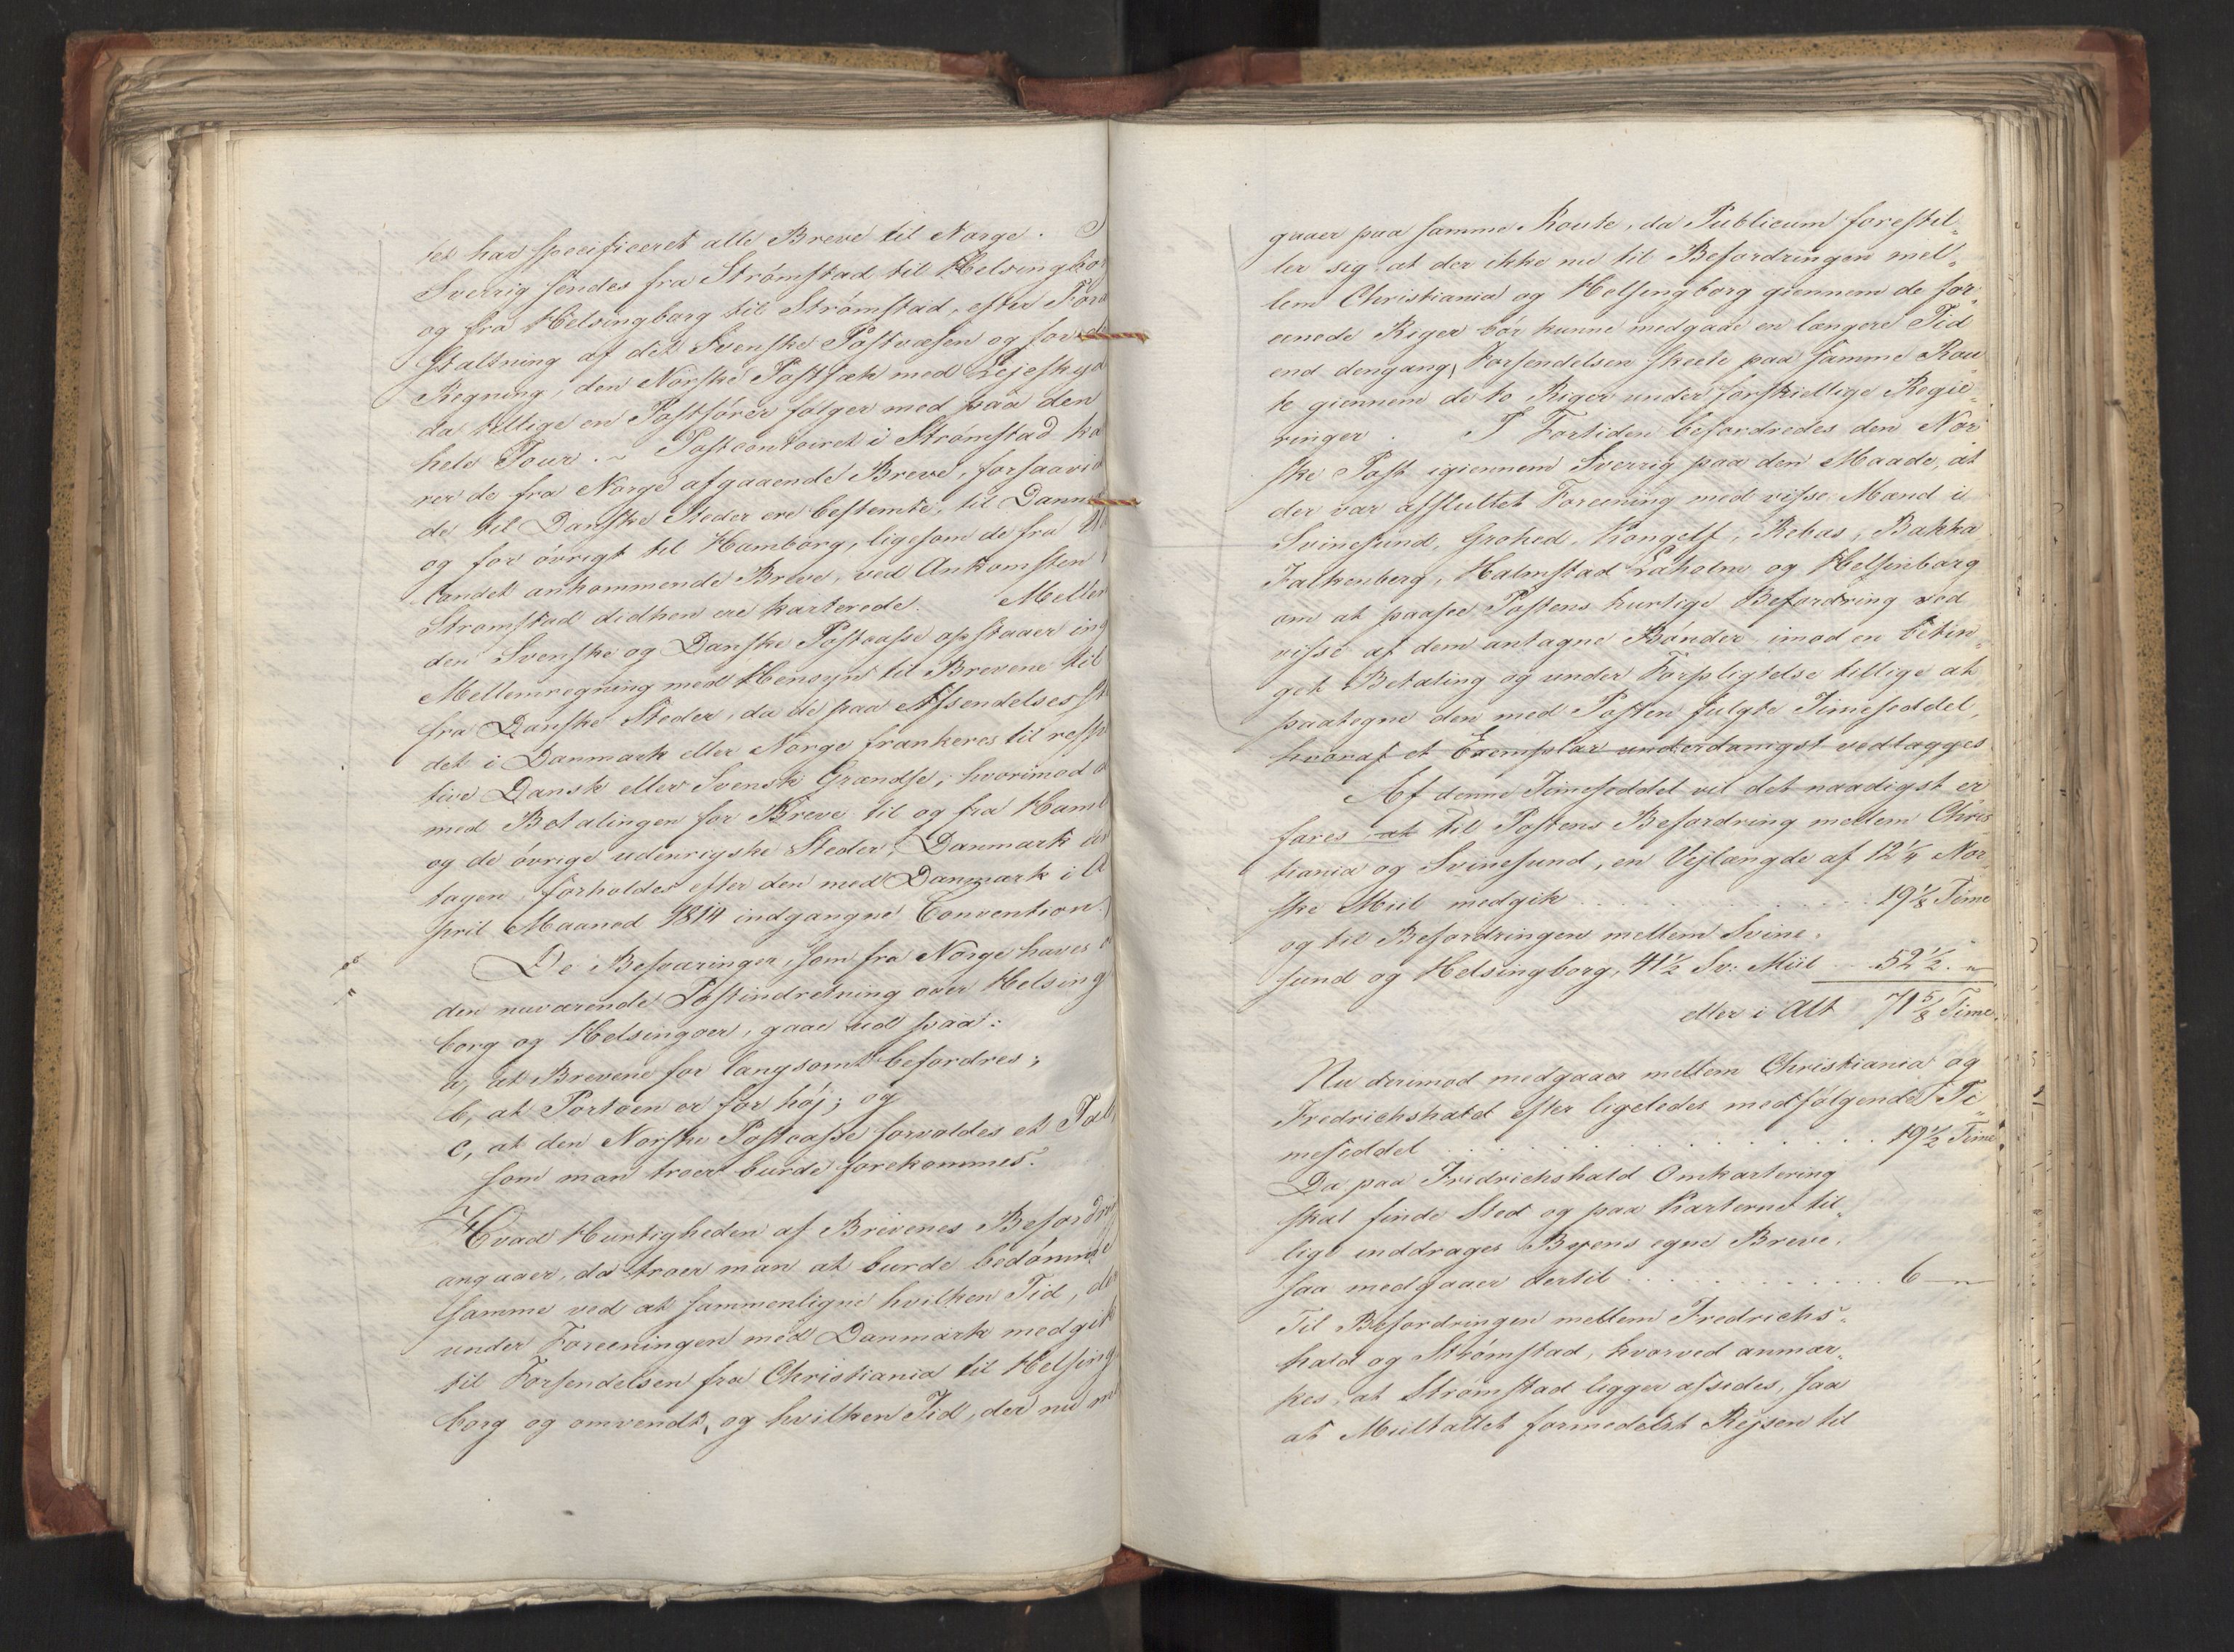 tet har specificeret alle Breve til Norge. I
Sverrig sendes fra Strømstad til Helsingbor
og fra Helsingborg til Strømstad, efter Foran
staltning af det Svenske Postvæsen og for de
Regning, den Norske Postsæk med Lejeskyd
da tillige en Postfører følger med paa den
hele Tour. ~ Postcontoiret i Strømstad ka
rer de fra Norge afgaaende Breve, forsaavid
de til Danske Steder ere bestemte, til Danm
og for øvrigt til Hamborg, ligesom de fra
landet ankommende Breve, ved Ankomsten
Strømstad didhen ere karterede. Mellem
den Svenske og Danske Postcasse opstaaer ing
Mellemregning med Hensyn til Brevene til
fra Danske Steder, da de paa Afsendelsesste
det i Danmark eller Norge frankeres til respe
tive Dansk eller Svensk Grændse; hvorimod
med Betalingen for Breve til og fra Hamb
og de øvrige udenrigske Steder, Danmark und
tagen, forholdes efter den med Danmark i A
pril Maaned 1814 indgangne Convention.
De Besværinger, som fra Norge haves o
den nuværende Postindretning over Helsing
borg og Helsingøer, gaae ud paa:
a, at Brevene for langsomt befordres;
b, at Portoen er for høj; og
c, at den Norske Postcasse forvoldes et Tab,
som man troer burde forekommes.
Hvad Hurtigheden af Brevenes Befordri
angaaer, da troer man at burde bedømme
samme ved at sammenligne hvilken Tid, der
under Foreeningen med Danmark medgik
til Forsendelsen fra Christiania til Helsing
borg og omvendt, og hvilken Tid, der nu m
gaaer paa samme Route, da Publicum forestil„
ler sig at der ikke nu til Befordringen mel„
lem Christiania og Helsingborg giennem de for„
enede Riger bør kunne medgaae en længere Tid
end dengang, Forsendelsen skeete paa samme Rou
te giennem de to Riger under forskiellige Regie„
ringer. I Fortiden befordredes den Nor
ske Post igiennem Sverrig paa den Maade, at
der var afsluttet Foreening med visse Mænd i
Svinesund, Grohed, Kongelf, Kebas, Bakka
Falkenberg, Halmstad Laholm og Helsinborg
om at paasee Postens hurtige Befordring ved
visse af dem antagne Bønder imod en betin„
get Betaling og under Forpligtelse tillige at
paategne den med Posten fulgte Timeseddel,
hvoraf et Exemplar underdanigst vedlægges
Af denne Timeseddel vil det naadigst er
fares at til Postens Befordring mellem Chris
tiania og Svinesund, en Vejlængde af 12¼ Nor
ske Miil medgik . . . . . . 19⅛ Time
og til Befordringen mellem Svine„
sund og Helsingborg, 41½ Sv: Miil 52½ . „
eller i Alt 71⅝ Time.
Nu derimod medgaaer mellem Christiania og
Fredrichshald efter ligeledes medfølgende Ti„
meseddel . . . . . . 19½ Time
Da paa Fridrichshald Omkartering
skal finde Sted og paa Karterne til„
lige inddrages Byens egne Breve,
saa medgaaer dertil . . . . . . 6 — „
Til Befordringen mellem Fredrichs„
hald og Strømstad, hvorved anmær„
kes, at Strømstad ligger afsides, saa
at Miiltallet formedelst Rejsen til